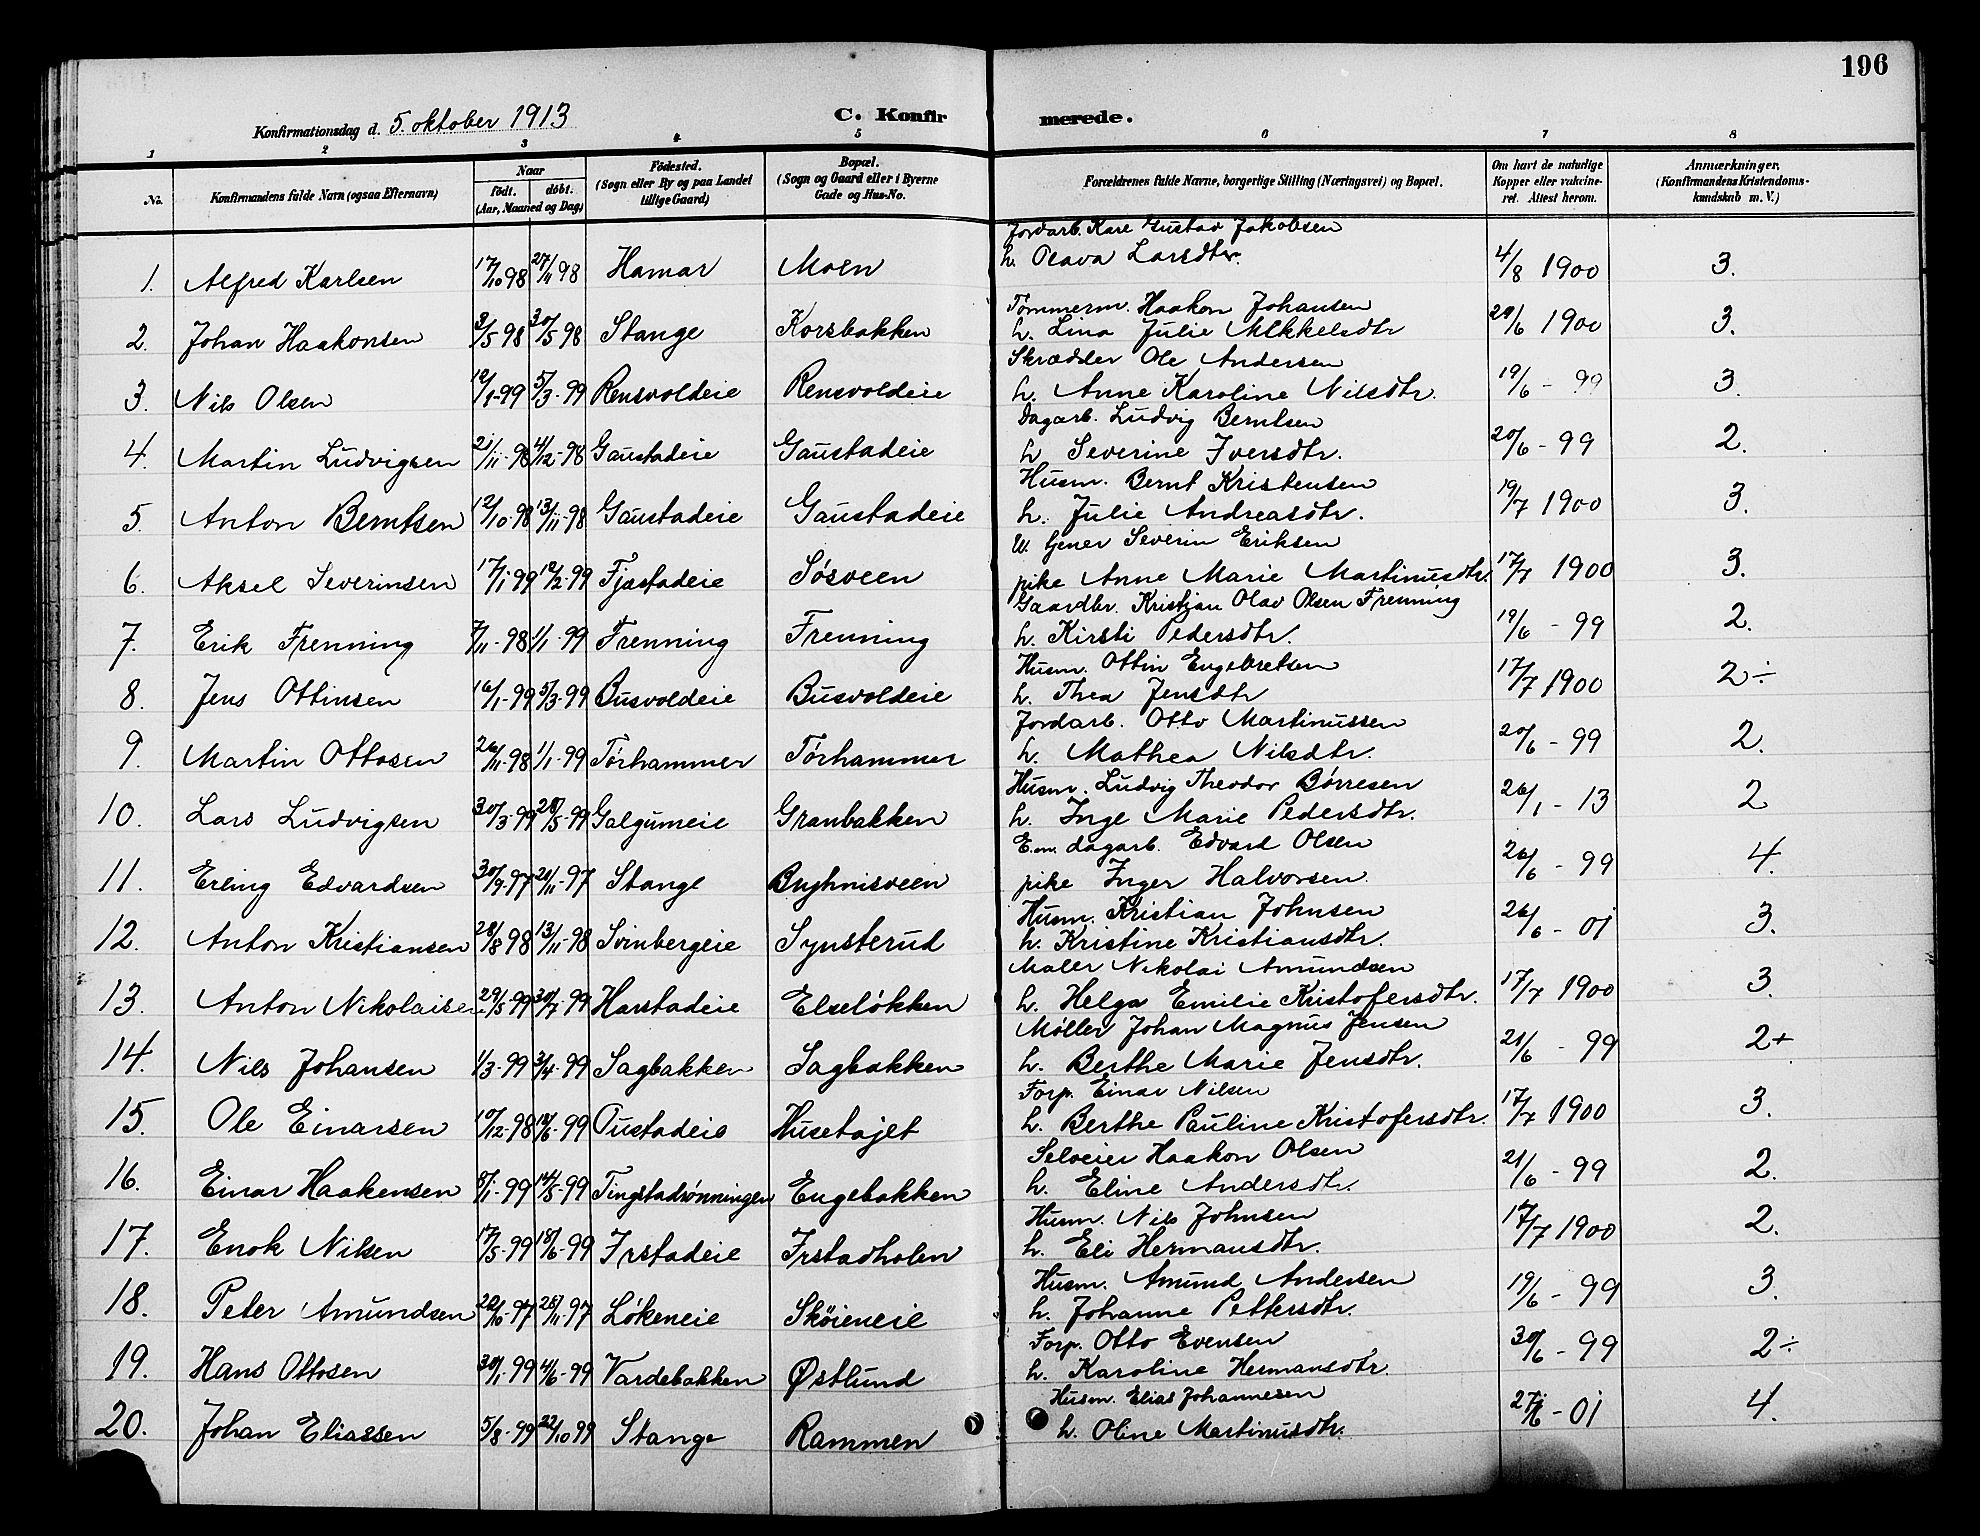 196
Konfirmationsdag d. 5. oktober 1913 C. Konfir merede.
1 2 3 4 5 6 7 8
No. Konfirmandens fulde Navn (ogsaa Efternavn) Naar født. døbt. (Aar, Maaned og Dag) Fødested. (Sogn eller By og paa Landet tillige Gaard) Bopæl. (Sogn og Gaard eller i Byerne Gade og Hus-No. Forældrenes fulde Navne, borgerlige Stilling (Næringsvei) og Bopæl. Om havt de naturlige Kopper eller vaccineret. Attest herom. Anmærkninger. (Konfirmandens Kristendomskundskab m. V.)
Jordarb. Karl Gustav Jakobsen
1. Alfred Karlsen 17/10 98 27/11 98 Hamar Moen h. Olava Larsdtr. 4/8 1900 3.
Tømmerm. Haakon Johansen
2. Johan Haakonsen 3/5 98 30/5 98 Stange Korsbakken h. Lina Julie Mikkelsdtr 29/6 1900 3.
Skrædder Ole Andersen
3. Nils Olsen 12/1-99 5/3-99 Rensvoldeie Rensvoldeie h. Anne Karoline Nilsdtr. 19/6 - 99 3.
Dagarb. Ludvig Berntsen
4. Martin Ludvigsen 21/11-98 4/12-98 Gaustadeie Gaustadeie h. Severine Iversdtr. 20/6 - 99 2.
Husm. Bernt Kristensen
5. Anton Berntsen 12/10-98 13/11-98 Gaustadeie Gaustadeie h. Julie Andreasdtr. 19/7 1900 3.
U. Gener Severin Eriksen
6. Aksel Severinsen 17/1-99 12/2-99 Fjæstadeie Søsveen pike Anne Marie Martinusdtr. 17/7 1900 3.
Gaardbr. Kristian Olav Olsen Frenning
7. Erik Frenning 7/11-98 1/1-99 Frenning Frenning h. Kirsti Pedersdtr. 19/6 - 99 2.
Husm. Ottin Engebretsen
8. Jens Ottinsen 16/1-99 5/3-99 Busvoldeie Busvoldeie h. Thea Jensdtr 17/7 1900 2÷
Jordarb. Otto Martinussen
9. Martin Ottosen 26/11-98 1/1-99 Tørhammer Tørhammer h. Mathea Nilsdtr. 20/6 - 99 2.
Husm. Ludvig Theodor Børresen
10. Lars Ludvigsen 30/3-99 28/5-99 Galgumeie Granbakken h. Inge Marie Pedersdtr. 26/1 - 13 2
E.m. dagarb. Edvard Olsen
11. Erling Edvardsen 30/9-97 21/11-97 Stange Buyhnisveen pike Inger Halvorsen. 26/6 - 99 4.
Husm. Kristian Johnsen
12. Anton Kristiansen 28/8 98 13/11-98 Svinbergeie Synsterud h. Kristine Kristiansdtr. 26/6 - 01 3.
Maler Nikolai Amundsen
13. Anton Nikolaisen 29/5-99 30/7-99 Harstadeie Elseløkken h. Helga Emilie Kristofersdtr. 17/7 1900 3.
Møller Johan Magnus Jensen
14. Nils Johansen 1/3-99 3/4-99 Sagbakken Sagbakken h. Berthe Marie Jensdtr. 21/6 - 99 2+
Forp. Einar Nilsen
15. Ole Einarsen 10/12-98 18/6-99 Oustadeie Husetajet h. Berthe Pauline Kristofersdtr. 17/7 1900 3.
Selveier Haakon Olsen
16. Einar Haakensen 8/1-99 14/5-99 Tingstadrønningen Engebakken h. Eline Andersdtr. 21/6 - 99 2.
Husm. Nils Johnsen
17. Enok Nilsen 17/5-99 18/6-99 Irstadeie Irstadholen h. Eli Hermansdtr. 17/7 1900 2.
Husm. Amund Andersen
18. Peter Amundsen 22/10-97 28/11-97 Løkeneie Skøieneie h. Johanne Pettersdtr. 19/6 - 99 3.
Forp. Otto Evensen
19. Hans Ottosen 30/1-99 4/6-99 Vardebakken Østlund h. Karoline Hermansdtr. 30/6 - 99 2÷
Husm. Elias Johannesen
20. Johan Eliassen 5/8-99 22/10 99 Stange Rammen h. Oline Martinusdtr. 27/6 - 01 4.